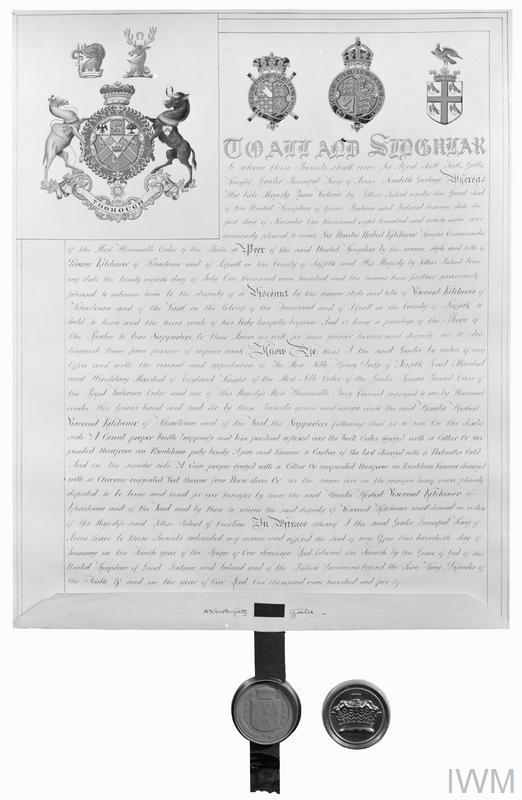 THOROUGH
TO ALL AND SINGULAR
to whom these Presents shall come Sir Alfred Scott Scott Gatty
Knight Garter Principal King of Arms Sendeth Greeting Whereas
Her late Majesty Queen Victoria by Letters Patent under the Great Seal
of the United Kingdom of Great Britain and Ireland bearing date the
first day of November One thousand eight hundred and ninety eight was
graciously pleased to create Sir Horatio Herbert Kitchener Knight Commander
of the Most Honourable Order of the Bath a Peer of the said United Kingdom by the name style and title of
Baron Kitchener of Khartoum and of Aspall in the County of Suffolk and His Majesty by Letters Patent bear
ing date the twenty eighth day of July One thousand nine hundred and two having been further graciously
pleased to advance him to the dignity of a Viscount by the name style and title of Viscount Kitchener of
Khartoum and of the Vaal in the Colony of the Transvaal and of Aspall in the County of Suffolk to
hold to him and the heirs male of his body lawfully begotten And it being a privilege of the Peers of
the Realm to bear Supporters to their Arms as well for their greater honour and dignity as to dis
tinguish them from persons of inferior rank Know Ye that I the said Garter by virtue of my
Office and with the consent and approbation of The Most Noble Henry Duke of Norfolk Earl Marshal
and Hereditary Marshal of England Knight of the Most Noble Order of the Garter Knight Grand Cross of
the Royal Victorian Order and one of His Majesty's Most Honourable Privy Council signified to me by Warrant
under His Grace's hand and seal do by these Presents grant and assign unto the said Horatio Herbert
Viscount Kitchener of Khartoum and of the Vaal the Supporters following that is to say On the dexter
side A Camel proper bridle and gorged with a Collar sus
pended therefrom an Escutcheon party bendy Azure and Ermine a Canton of the last charged with a Gold
And on the sinister side A Gnu proper gorged with a Collar suspended therefrom an Escutcheon Ermine charged
with a Chevron Vert thereon four Horse shoes Or as the same are in the margin hereof more plainly
depicted to be borne and used for ever hereafter by him the said Horatio Herbert Viscount Kitchener of
Khartoum and of the Vaal and by those to whom the said dignity of Viscount Kitchener shall descend in virtue
of His Majesty's said Letters Patent of Creation In Witness whereof I the said Garter Principal King of
Arms have to these Presents subscribed my name and affixed the seal of my Office this twentieth day of
January in the Fourth year of the Reign of Our Sovereign Lord Edward the Seventh by the Grace of God of the
United Kingdom of Great Britain and Ireland and of the British Dominions beyond the Seas King Defender of
the Faith &c and in the year of Our Lord One thousand nine hundred and five
Garter
IWM